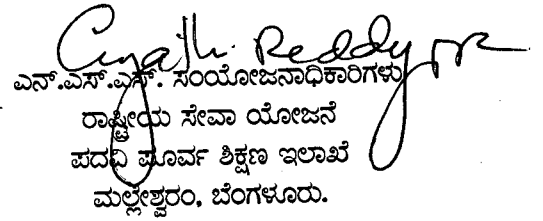 Reddy
ಎನ್.ಎಸ್.ಎಸ್. ಸಂಯೋಜನಾಧಿಕಾರಿಗಳು
ರಾಷ್ಟ್ರೀಯ ಸೇವಾ ಯೋಜನೆ
ಪದವಿ ಪೂರ್ವ ಶಿಕ್ಷಣ ಇಲಾಖೆ
ಮಲ್ಲೇಶ್ವರಂ, ಬೆಂಗಳೂರು.